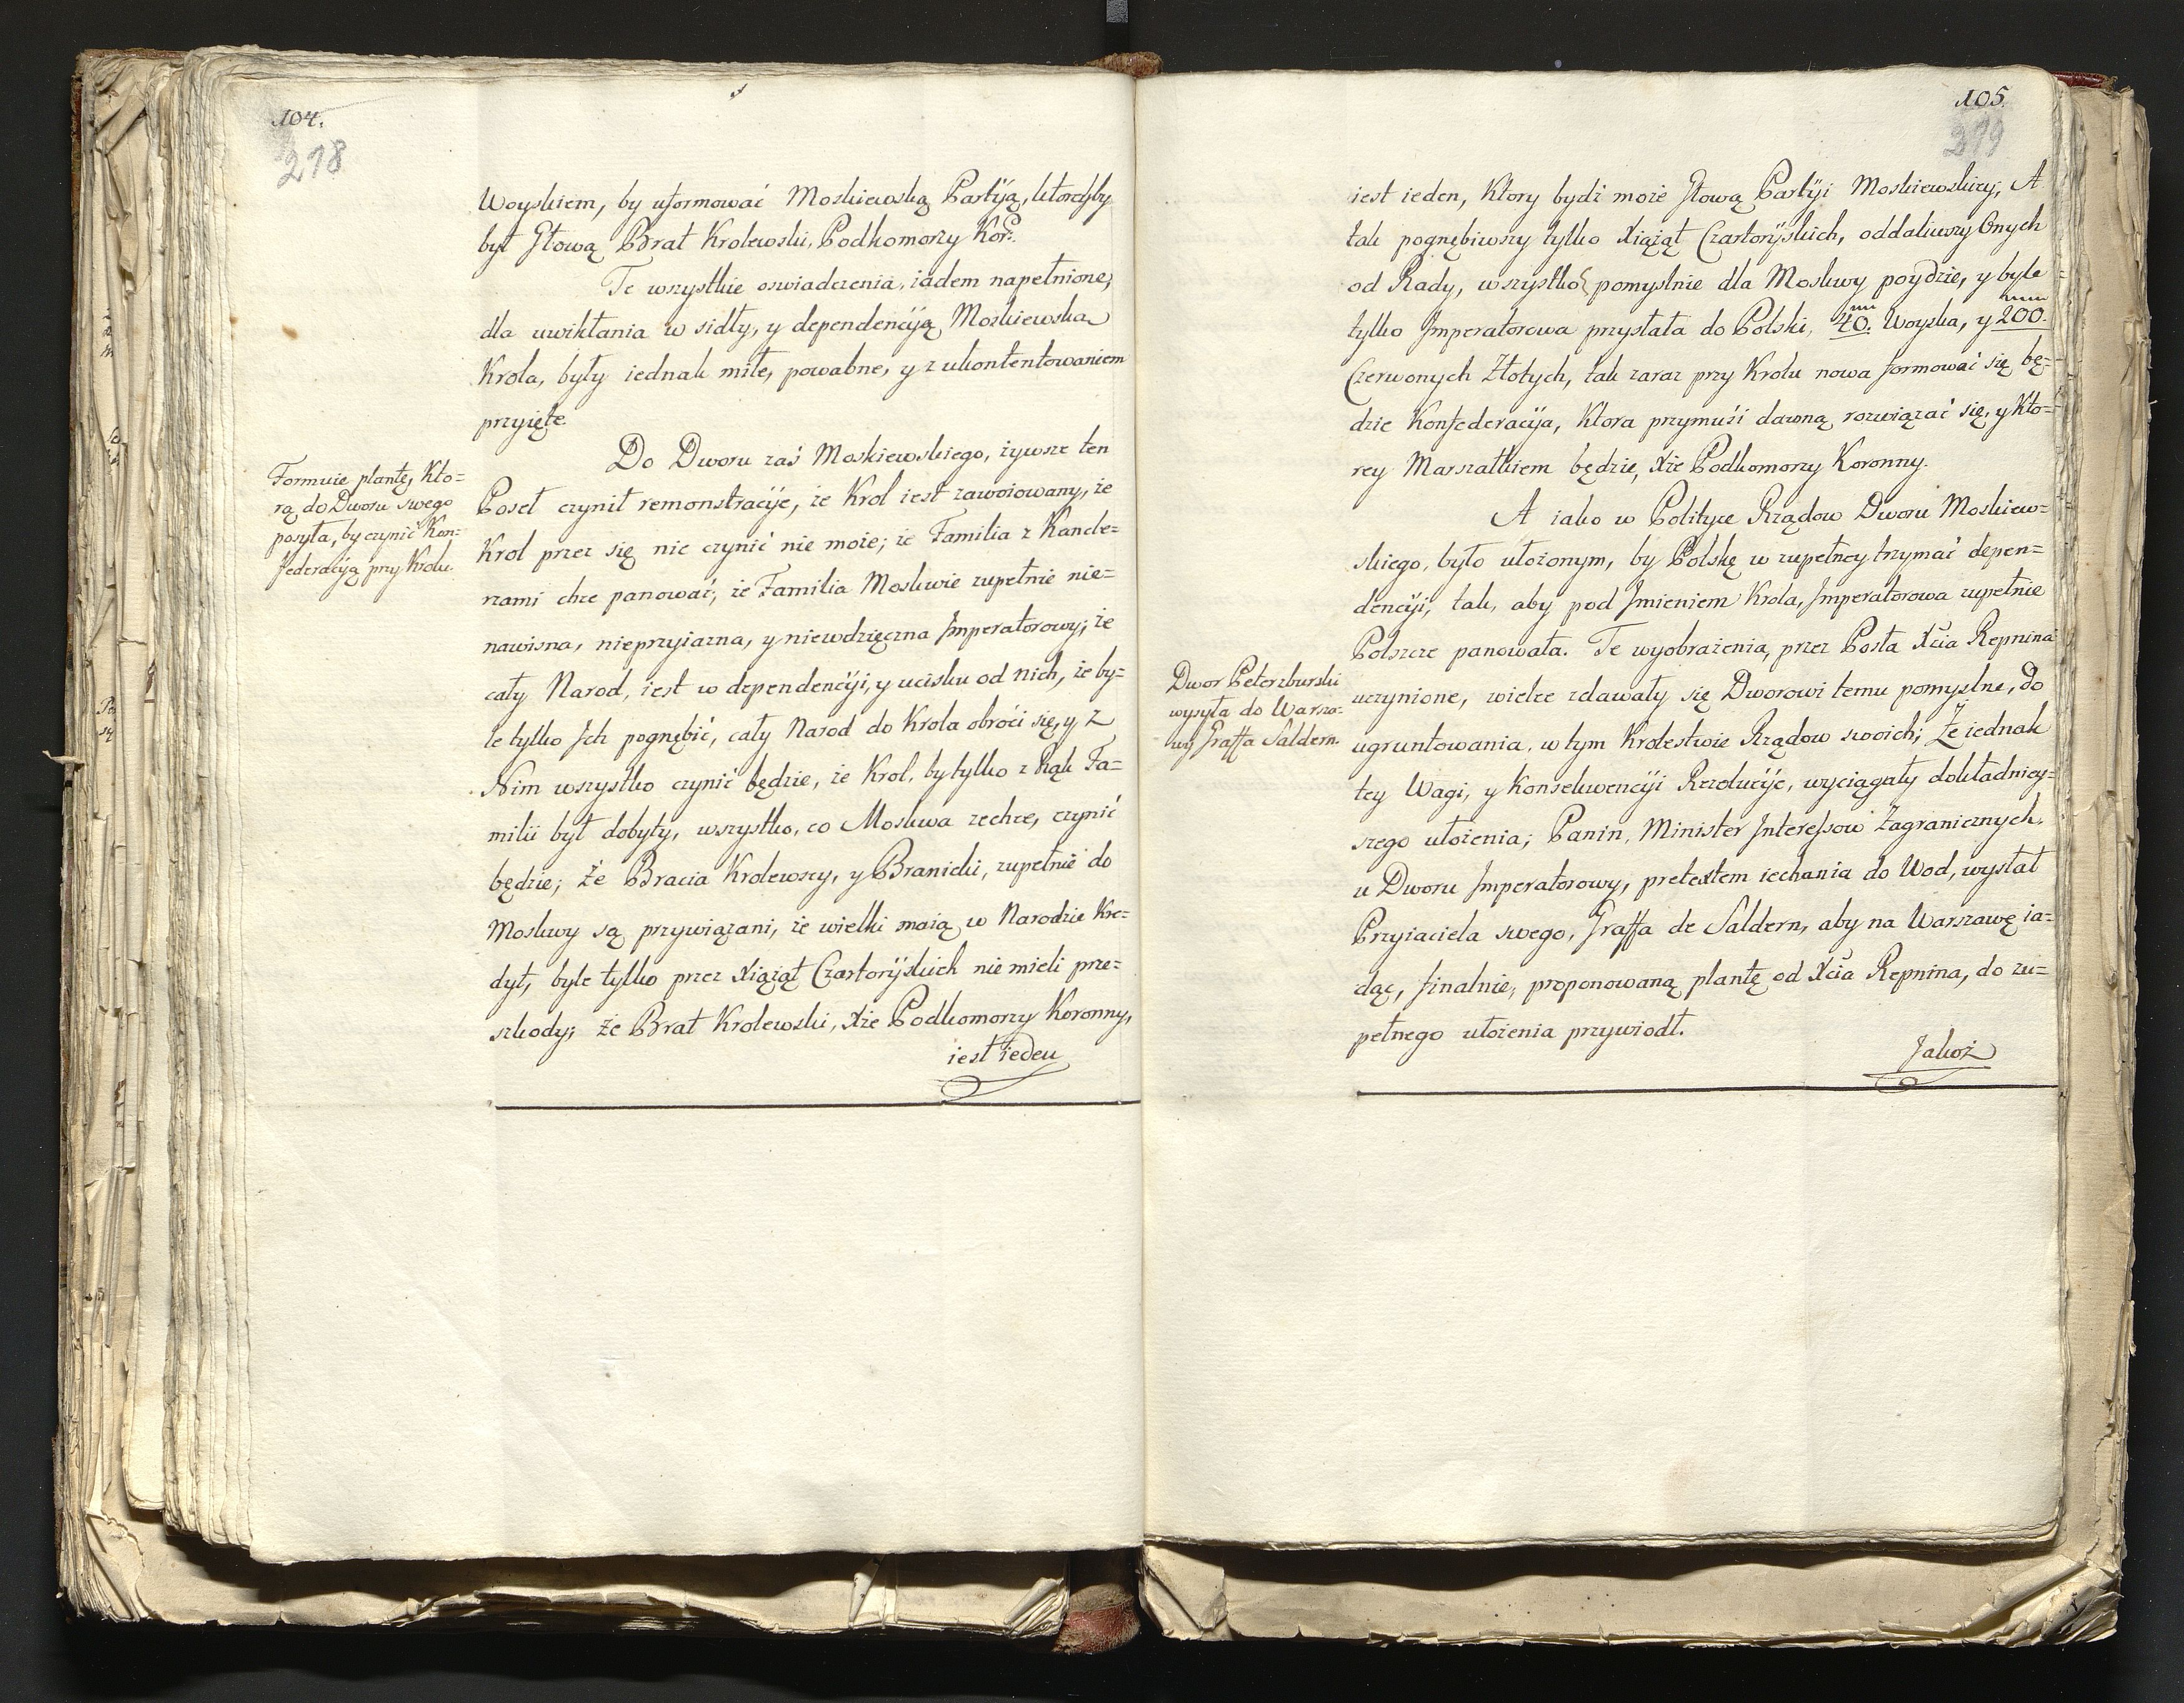 104.
218
Woyskiem, by uformować Moskiewską Partyią, ktoreyby
był Głową Brat Krolewski, Podkomorzy Kor:
Te wszystkie oswiadczenia, iadem napełnione,
dla uwikłania w sidły, y dependencyią Moskiewską
Krola, były iednak miłe, powabne, y z ukontentowaniem
przyięte.
Do Dworu zaś Moskiewskiego, żywsze ten
Poseł czynił remonstracyie, że Krol iest zawoiowany, że
Krol przez się nic czynić nie może; że Familia z Kancle=
rzami chce panować; że Familia Moskwie zupełnie nie=
nawisna, nieprzyiazna, y niewdzięczna Imperatorowy; że
cały Narod, iest w dependencyi, y ucisku od nich, że by=
le tylko Ich pognębić, cały Narod do Krola obróci się, y z
Nim wszystko czynić będzie, że Krol, by tylko z Rąk Fa=
milii był dobyty, wszystko, co Moskwa zechce, czynić
będzie; że Bracia Krolewscy, y Branicki, zupełnie do
Moskwy są przywiązani, że wielki maią w Narodzie Kre=
dyt, byle tylko przez Xiążąt Czartoryskich nie mieli prze=
szkody; że Brat Krolewski, Xże Podkomorzy Koronny,
iest ieden
Formuie plantę, Kto=
rą do Dworu swego
posyła, by czynić Kon=
federacyią przy Krolu.
105.
219
iest ieden, Ktory bydź może Głową Partyi Moskiewskiey; A
tak pognębiwszy tylko Xiążąt Czartoryskich, oddaliwszy Onych
od Rady, wszystko pomyslnie dla Moskwy poydzie, y byle
tylko Imperatorowa przysłała do Polski, 40. Woyska, y 200.
Czerwonych Złotych, tak zaraz przy Krolu nowa formować się bę=
dzie Konfederacyia, Ktora przymusi dawną rozwiązać się, y Kto=
rey Marszałkiem będzie, Xże Podkomorzy Koronny.
A iako w Polityce Rządow Dworu Moskiew=
skiego, było ułożonym, by Polskę w zupełney trzymać depen=
dencyi, tak, aby pod Imieniem Krola, Imperatorowa zupełnie
Polszcze panowała. Te wyobrażenia, przez Posła Xcia Repnina
uczynione, wielce zdawały się Dworowi temu pomyslne, do
ugruntowania, w tym Krolestwie Rządow swoich; Że iednak
tey Wagi, y Konsekwencyi Rezolucyie, wyciągały dokładniey=
szego ułożenia; Panin, Minister Interessow Zagranicznych,
u Dworu Imperatorowy, pretextem iechania do Wod, wysłał
Przyiaciela swego, Graffa de Saldern, aby na Warszawę ia=
dąc, finalnie, proponowaną plantę od Xcia Repnina, do zu=
pełnego ułożenia przywiodł.
Jakoż
Dwor Peterzburski
wysyła do Warsza=
wy Graffa Saldern.